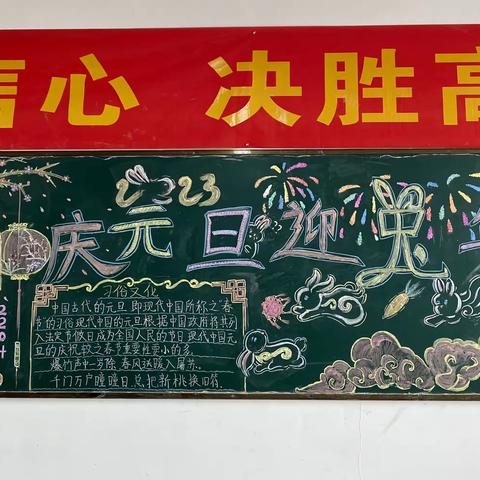 信心 决胜高
2023
庆元旦迎兔
2204
习俗文化
中国古代的元旦即现代中国所称之"春
节"的习俗现代中国的元旦根据中国政府将其列
入法定节假日成为全国人民的节日现代中国元
旦的庆祝较之春节重要性要小的多。
爆竹声中一岁除,春风送暖入屠苏。
千门万户曈曈日,总把新桃换旧符。